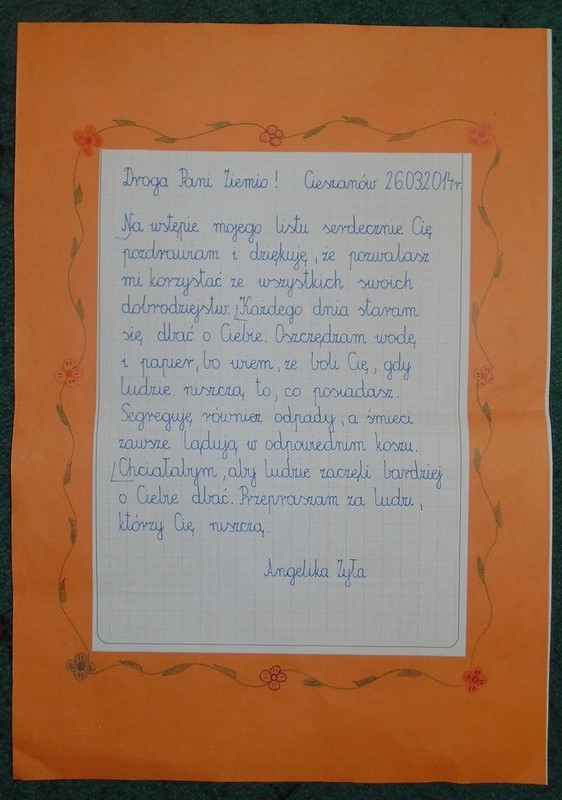 Droga Pani Ziemio! Cieszanów 26.03.2014r.
Na wstępie mojego listu serdecznie Cię
pozdrawiam i dziękuję, że pozwalasz
mi korzystać ze wszystkich swoich
dobrodziejstw. Każdego dnia staram
się dbać o Ciebie. Oszczędzam wodę
i papier, bo wiem, że boli Cię, gdy
ludzie niszczą to, co posiadasz.
Segreguję również odpady, a śmieci
zawsze lądują w odpowiednim koszu.
Chciałabym, aby ludzie zaczęli bardziej
o Ciebie dbać. Przepraszam za ludzi,
którzy Cię niszczą.
Angelika Żyła